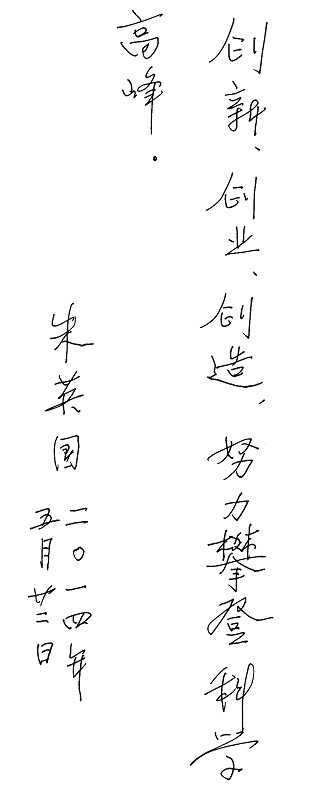 创新、创业、创造，努力攀登科学
高峰.
朱英国
二〇一四年
五月廿二日